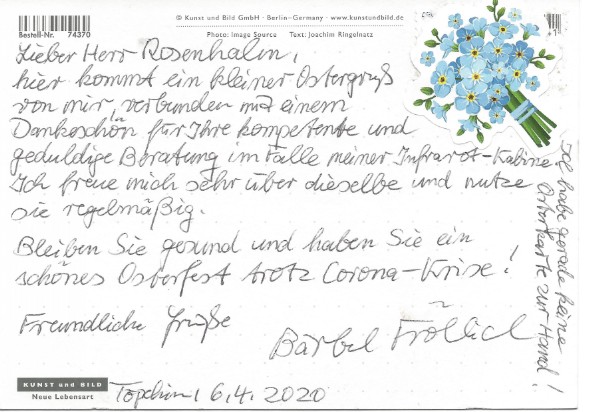 © Kunst und Bild GmbH · Berlin–Germany · www.kunstundbild.de
Bestell-Nr. 74370
Photo: Image Source Text: Joachim Ringelnatz
Lieber Herr Rosenhahn,
hier kommt ein kleiner Ostergruß
von mir, verbunden mit einem
Dankeschön für Ihre kompetente und
geduldige Beratung im Falle meiner Infrarot-Kabine.
Ich freue mich sehr über dieselbe und nutze
sie regelmäßig.
Bleiben Sie gesund und haben Sie ein
schönes Osterfest trotz Corona-Krise!
Freundliche Grüße
Bärbel Frölich
Ich habe gerade keine
Osterkarte zur Hand!
KUNST und BILD
Neue Lebensart
Töpchin, 6.4.2020